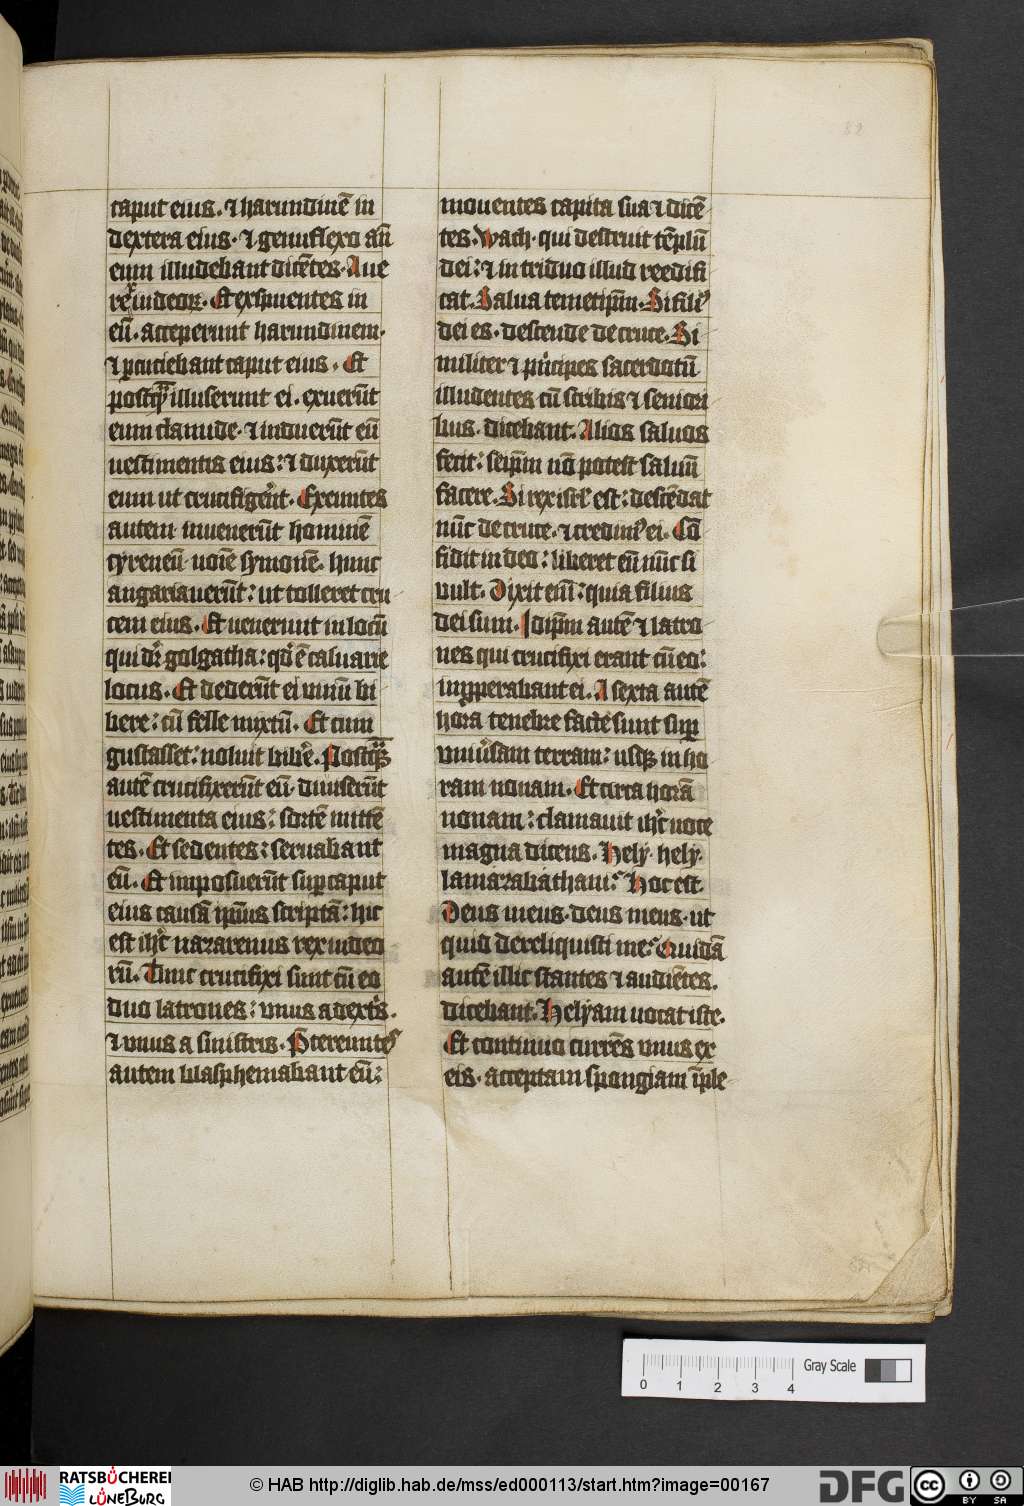 82
caput eius. ⁊ harundinē in
dextera eius. ⁊ genuflexo an̄
eum illudebant dicētes. Aue
rex iudeoꝝ. Et exspuentes in
eū. acceperunt harundinem.
⁊ ꝑcuciebant caput eius. Et
postqᷓ illuserunt ei. exuerūt
eum clamide. ⁊ induerūt eū
uestimentis eius: ⁊ duxerūt
eum ut crucifigerēt. Exeuntes
autem inuenerūt hominē
cyreneū noīe symonē. hunc
angariauerūt: ut tolleret cru
cem eius. Et uenerunt in locū
qui dr̄ golgatha: qd̓ ē caluarie
locus. Et dederūt ei uinū bi
bere: cū felle mixtū. Et cum
gustasset: noluit bibe̓. Postqᷓꝫ
autē crucifixerūt eū. diuiserūt
uestimenta eius: sortē mitte̅
tes. Et sedentes: seruabant
eū. Et imposuerūt suꝑ caput
eius causā ip̄ius scriptā: hic
est ih̓c nazarenus rex iudeo
rū. Tunc crucifixi sunt cū eo
duo latrones: vnus a dextr̓s.
⁊ vnus a sinistris. P̄tereuntes
autem blasphemabant eū:
mouentes capita sua ⁊ dicē
tes. Wach. qui destruit tēplū
dei: ⁊ in triduo illud reedifi
cat. Salua temetip̄m. Si filiꝰ
dei es. descende de cruce. Si
militer ⁊ pͥncipes sacerdotū
illudentes cū scribis ⁊ seniori
bus. dicebant. Alios saluos
fecit: seip̄m nō potest saluū
facere. Si rex isrl̓ est: descēdat
nūc de cruce. ⁊ credimꝰ ei. Cō
fidit in deo: liberet eū nūc si
vult. Dixit eni̅: quia filius
dei sum. Idip̄m autē ⁊ latro
nes qui crucifixi erant cū eo:
inꝓperabant ei. A sexta autē
hora tenebre facte sunt suꝑ
vniu̓sam terram: usqꝫ in ho
ram nonam. Et circa horā
nonam: clamauit ih̓c uoce
magna dicens. Hely. hely.
lamazabathani: Hoc est.
Deus meus. deus meus. ut
quid dereliquisti me: Quidā
autē illic stantes ⁊ audiētes.
dicebant. Helyam uocat iste.
Et continuo currēs vnus ex
eis. acceptam spongiam īple
Gray Scale
0 1 2 3 4
RATSBÜCHEREI
LÜNEBURG
© HAB http://diglib.hab.de/mss/ed000113/start.htm?image=00167
DFG
cc BY SA